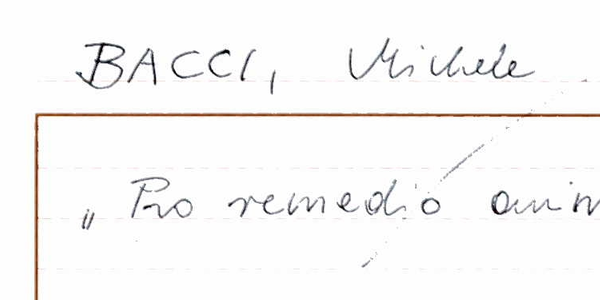 BACCI, Michele
„Pro remedio anim